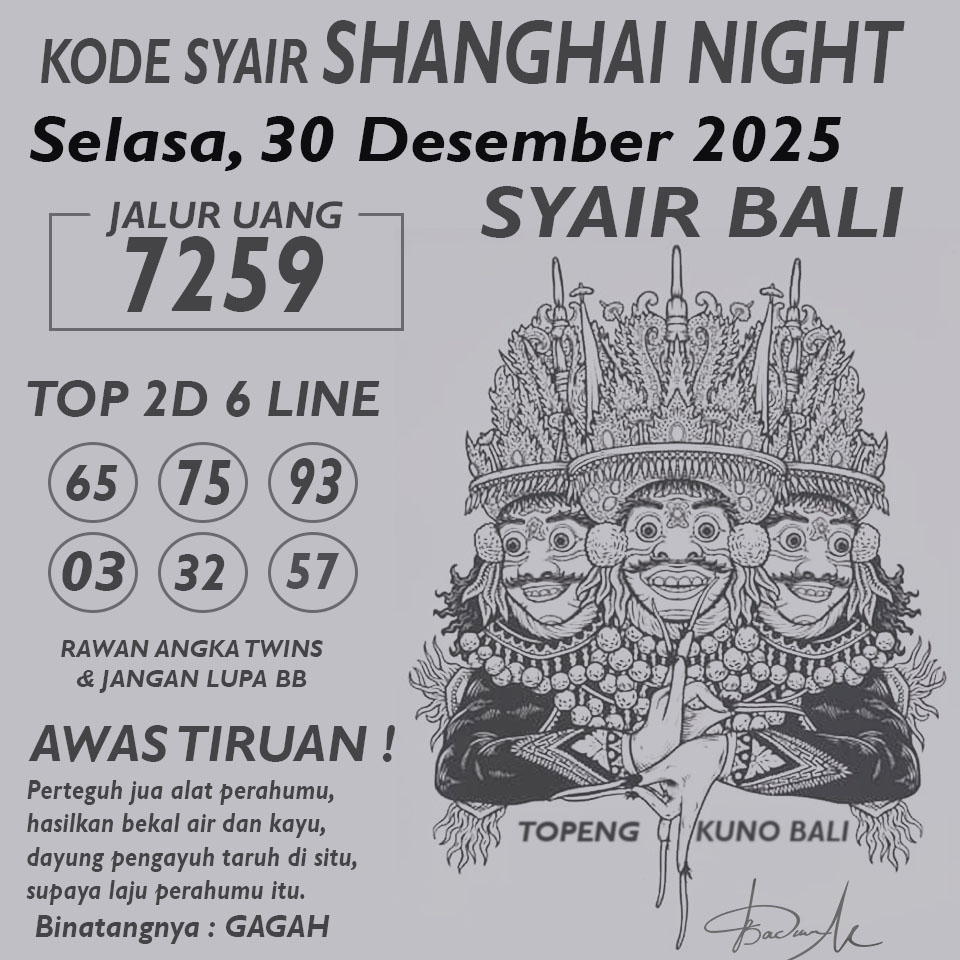 KODE SYAIR SHANGHAI NIGHT
Selasa, 30 Desember 2025
SYAIR BALI
JALUR UANG
7259
TOP 2D 6 LINE
65 75 93
03 32 57
RAWAN ANGKA TWINS
& JANGAN LUPA BB
AWAS TIRUAN !
Perteguh jua alat perahumu,
hasilkan bekal air dan kayu,
dayung pengayuh taruh di situ,
supaya laju perahumu itu.
Binatangnya : GAGAH
TOPENG KUNO BALI